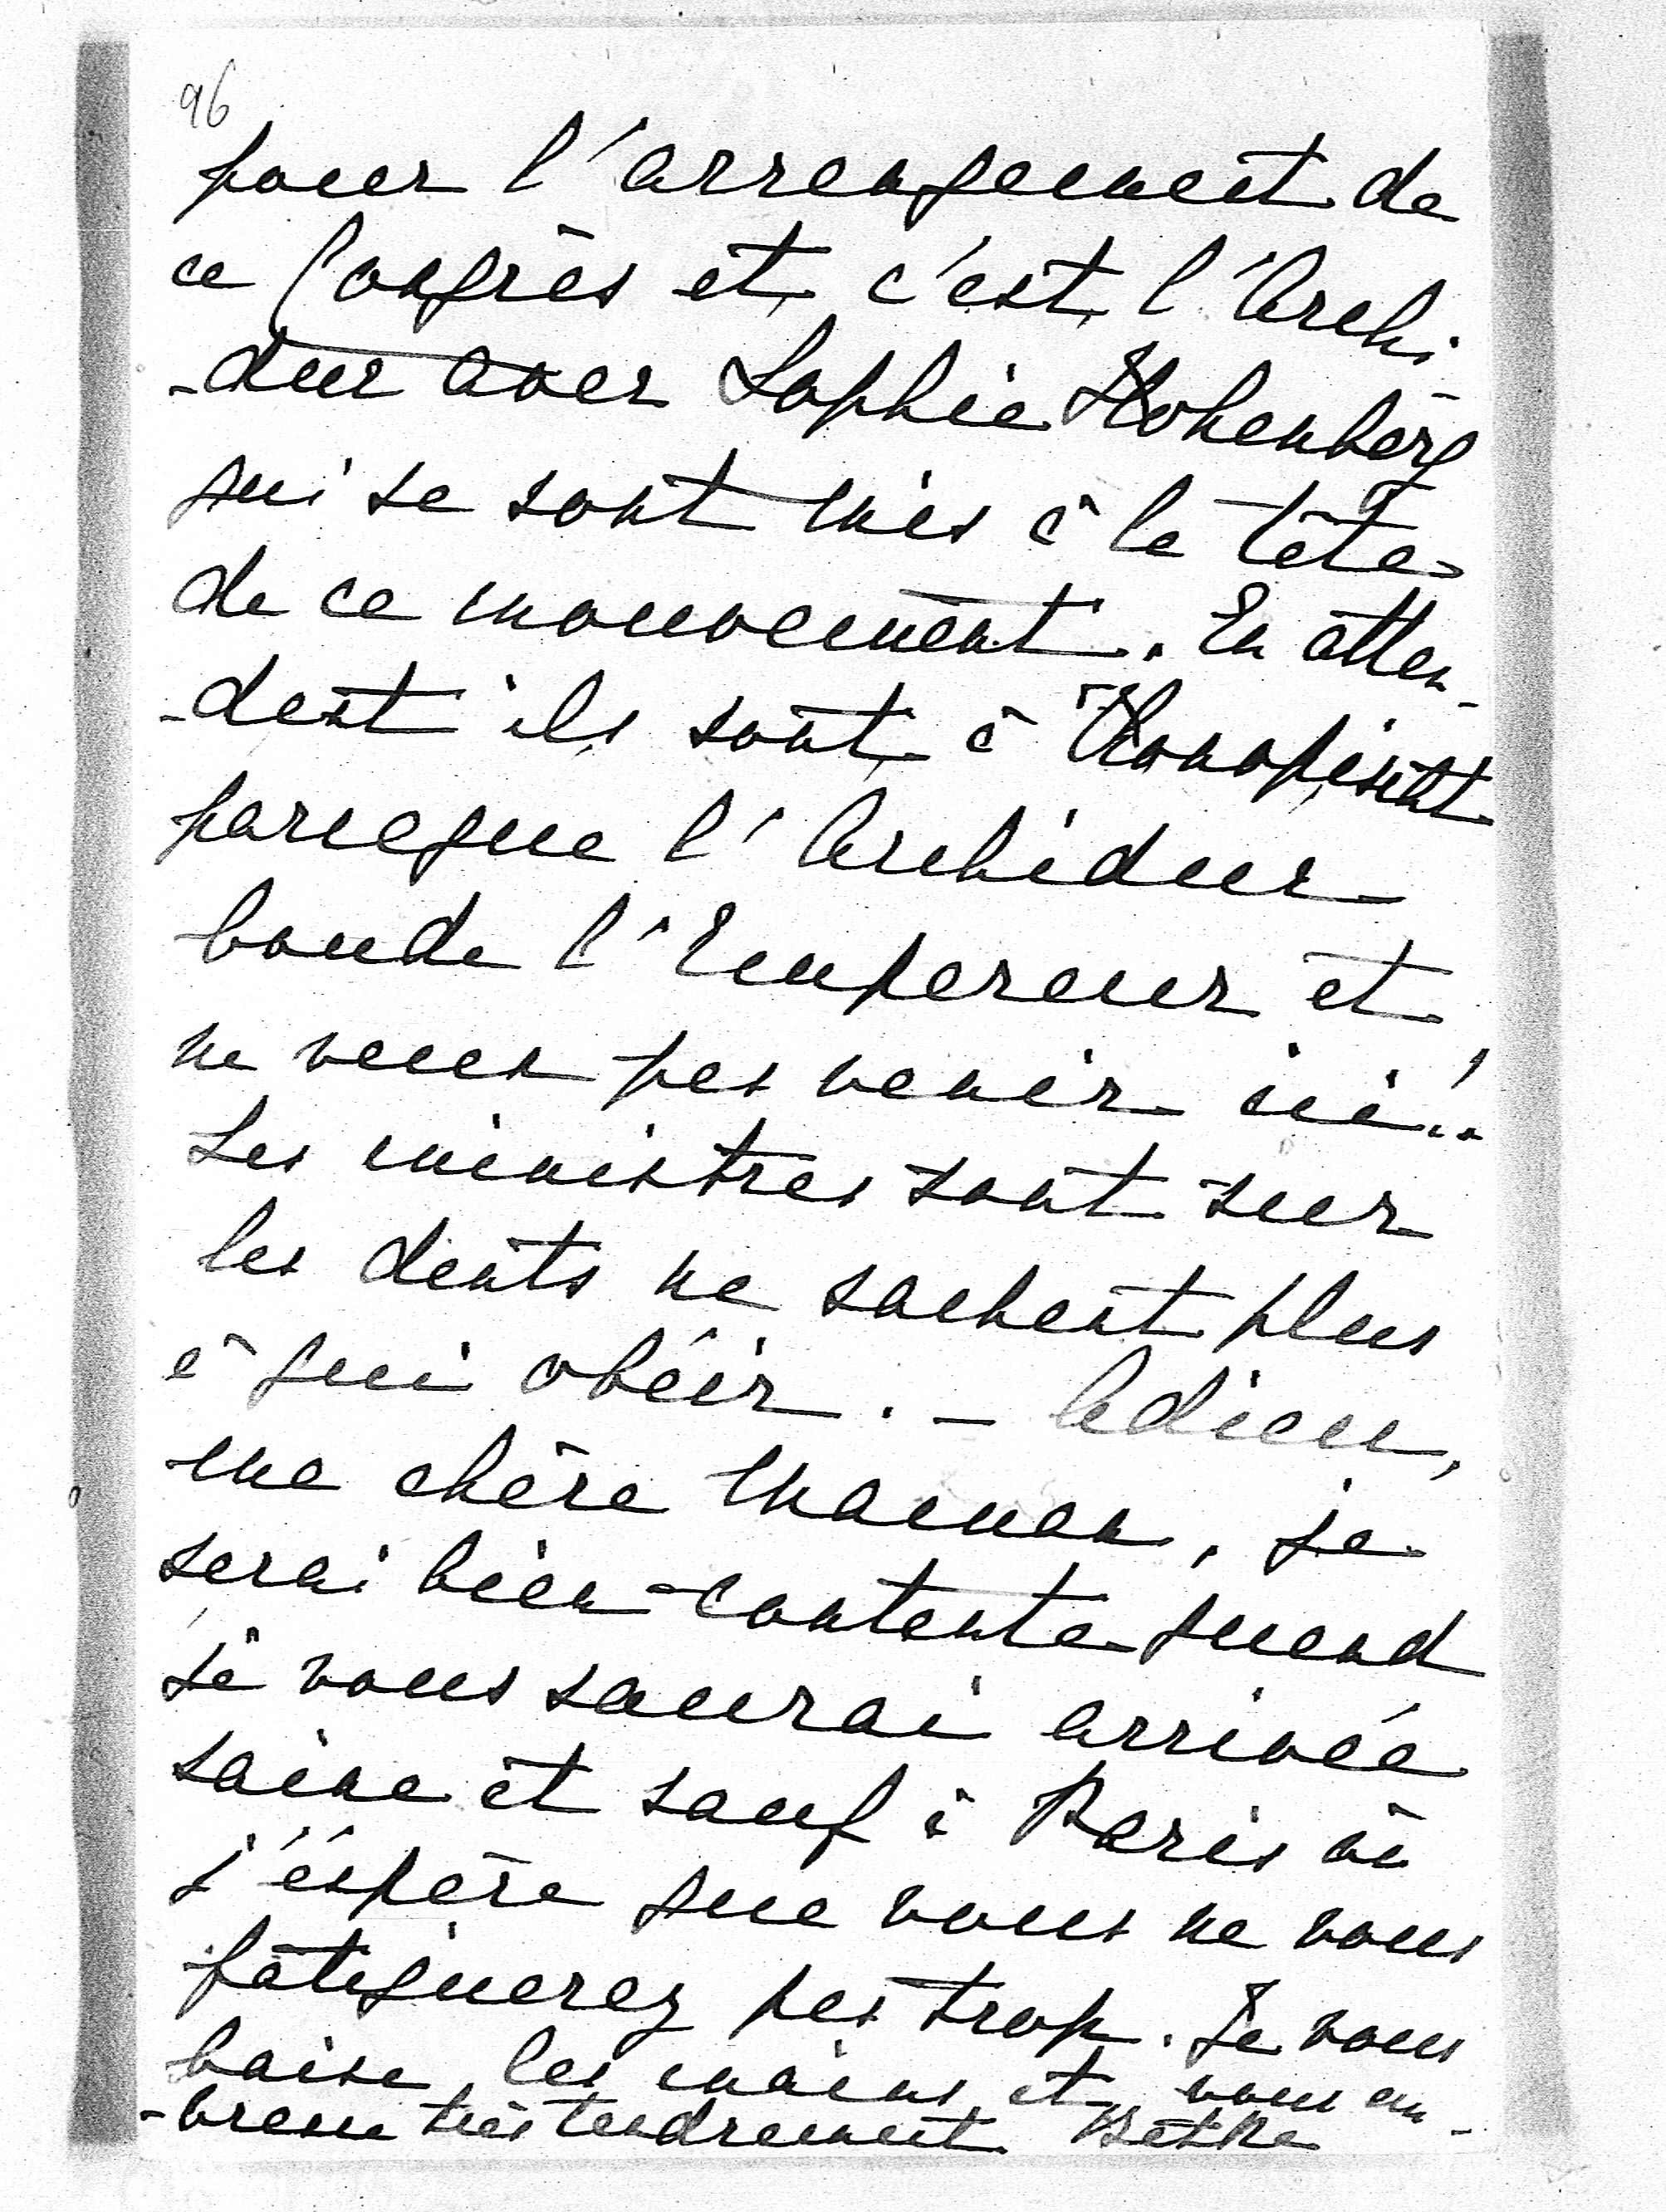 96
pour l'arrangement de
ce Congrès et c'est l'Archi
-duc avec Sophie Hohenberg
qui se sont mis à la tête
de ce mouvement. En atten-
-dant ils sont à Konopischt
parceque l'Archiduc
boude l'Empereur et
ne veux pas venir ici!!
Les ministres sont sur
les dents ne sachent plus
à qui obéir. – Adieu,
ma chère Maman, je
serai bien contente quand
je vous saurai arrivée
saine et sauf à Paris où
j'éspère que vous ne vous
fatiguerez pas trop. Je vous
baise les mains et vous em-
-brasse très tendrement